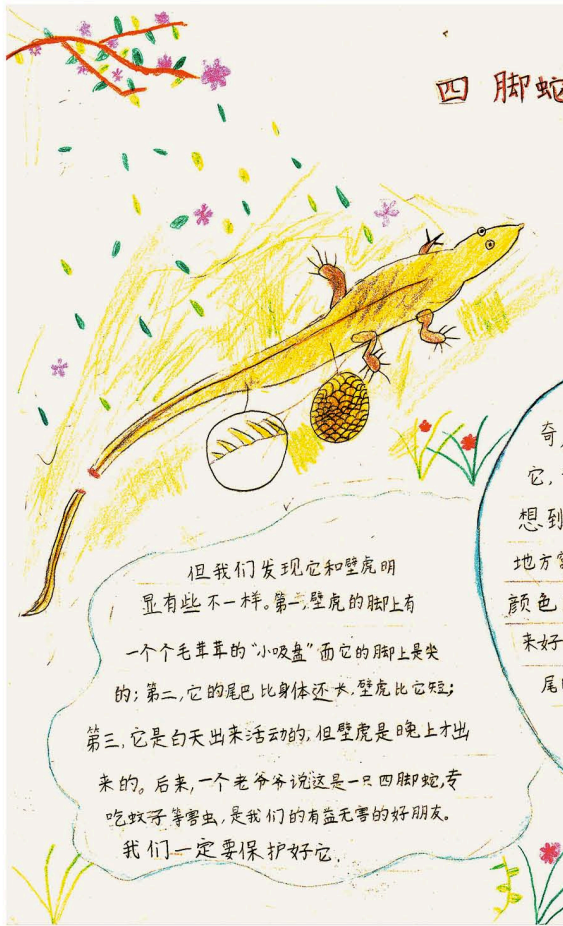 四 脚蛇
但我们发现它和壁虎明
显有些不一样。第一,壁虎的脚上有
一个个毛茸茸的“小吸盘”而它的脚上是尖
的;第二,它的尾巴比身体还长,壁虎比它短;
第三,它是白天出来活动的,但壁虎是晚上才出
来的。后来,一个老爷爷说这是一只四脚蛇,专
吃蚊子等害虫,是我们的有益无害的好朋友。
我们一定要保护好它.
奇,
它,
想到
地方
颜色
来好
尾